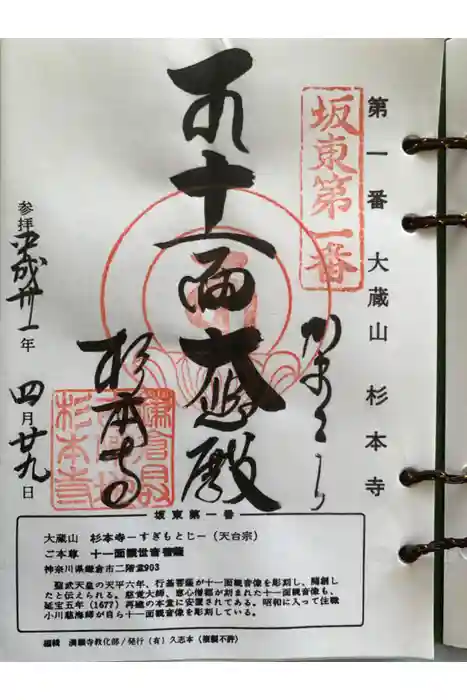 第一番 大蔵山 杉本寺
坂東第一番
かまくら
十一面大悲殿
杉本寺
参拝 平成卅一年 四月廿九日
坂東第一番
大蔵山 杉本寺－すぎもとじ－（天台宗）
ご本尊 十一面観世音菩薩
神奈川県鎌倉市二階堂903
聖武天皇の天平六年、行基菩薩が十一面観音像を彫刻し、開創し
たと伝えられる。慈覚大師、恵心僧都が刻まれた十一面観音像も、
延宝五年（1677）再建の本堂に安置されてある。昭和に入って住職
小川慈海師が自ら十一面観音像を彫刻している。
編輯 満願寺教化部／発行（有）久志本（複製不許）